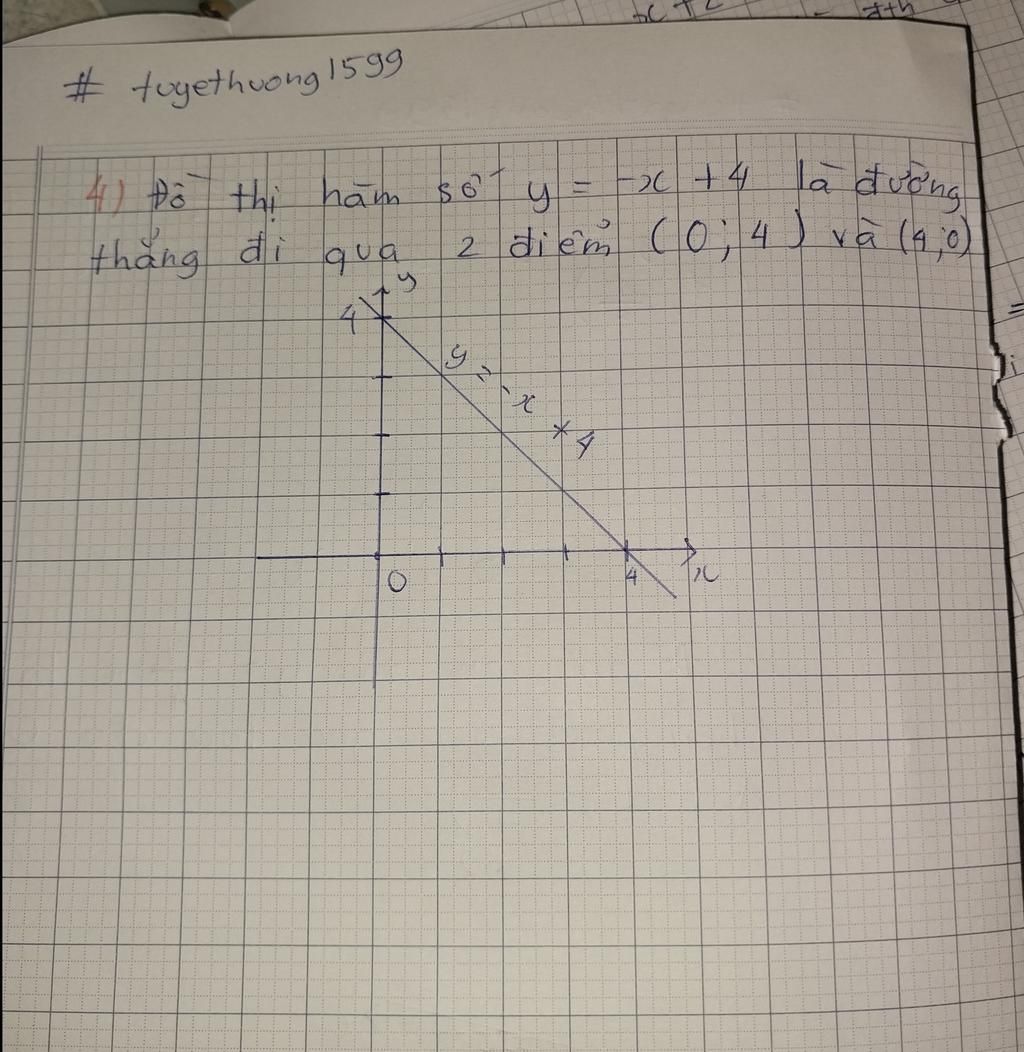 # tuyethuong1599
4) Đồ thị hàm số y = -x + 4 là đường
thẳng đi qua 2 điểm (0; 4) và (4;0)
y
4
y = -x + 4
O
4
x